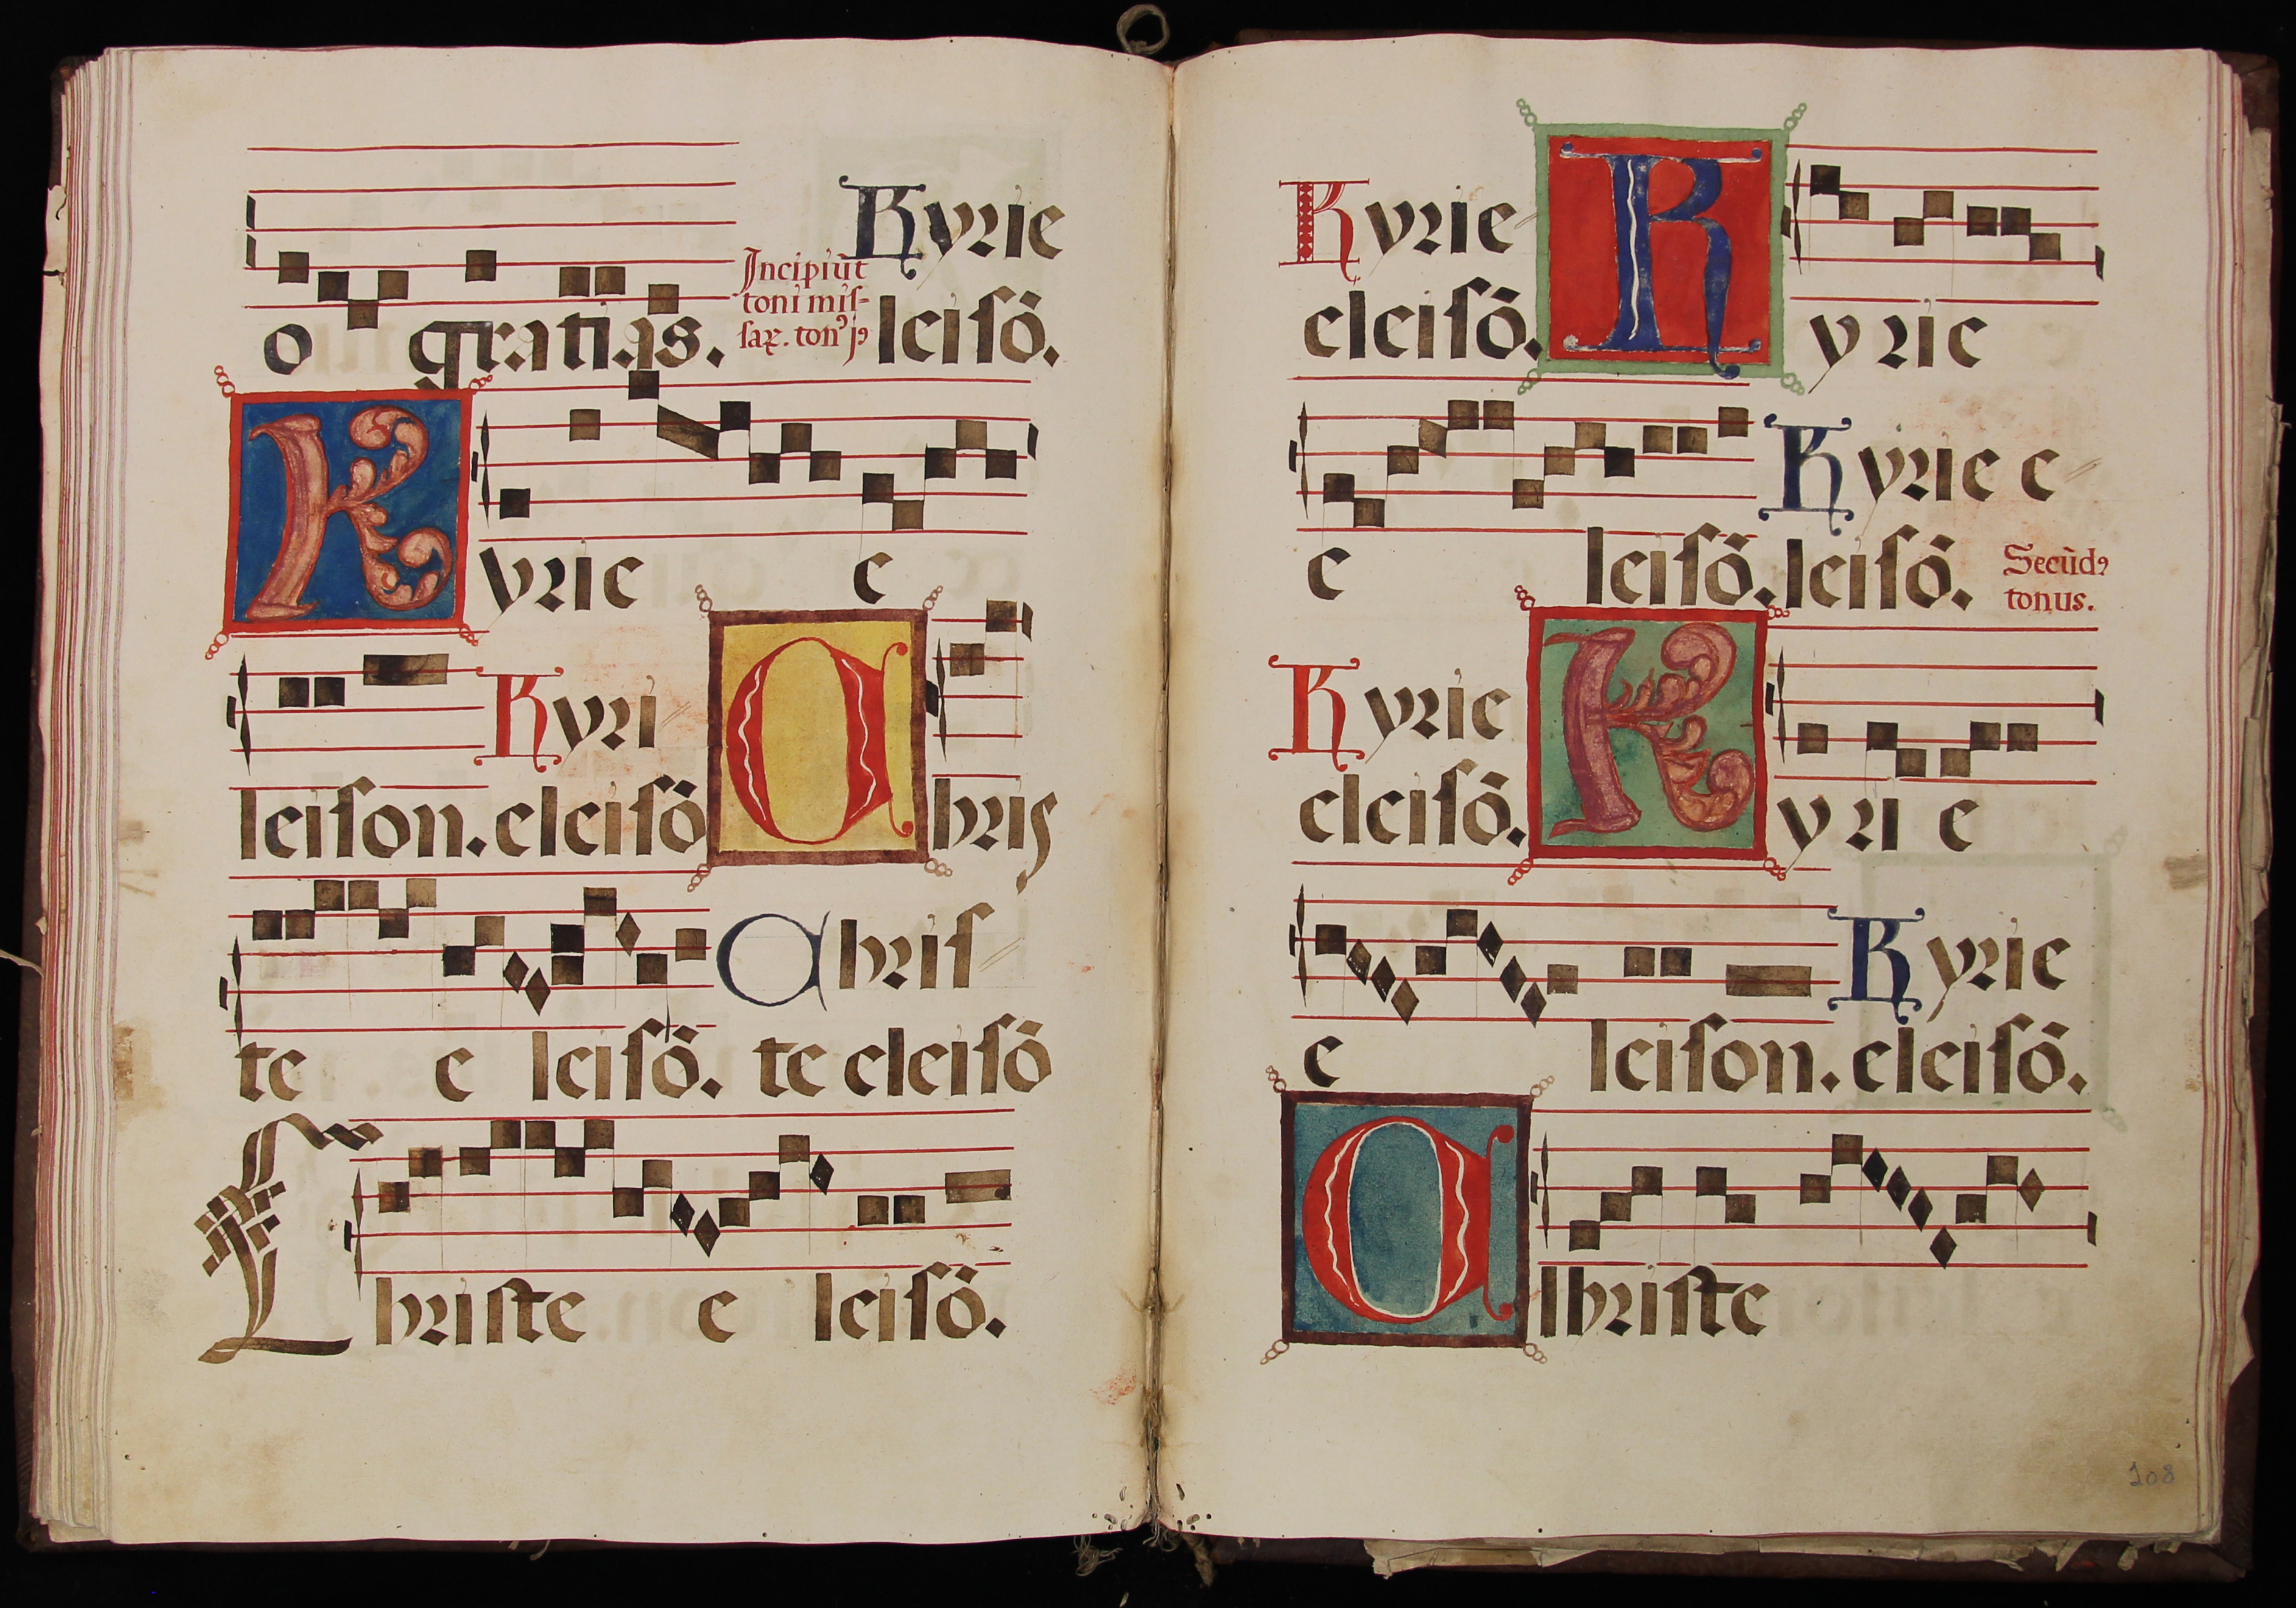 o gratias.
Incipiūt
toni mis-
saꝝ. tonꝰ jꝰ
Kyrie
leisō.
Kyrie e
leison.
Kyri-
eleisō
Chris
te e leisō.
Chris-
te eleisō
Christe e leisō.
Kyrie
eleisō.
Kyrie
e leisō.
Kyrie e-
leisō.
Secūdꝰ
tonus.
Kyrie
eleisō.
Kyrie
e leison.
Kyrie
eleisō.
Christe
108